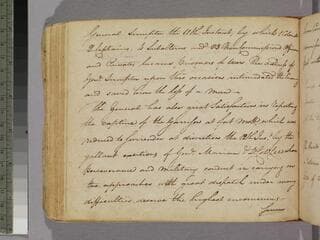 General Sumpter the 11th Instant, by which 1
2 Captains, 3 Subalterns and 83 Noncommissioned Officers
and Privates became Prisoners of War. The
Genl Sumpter upon this occasion intimidated the Enemy
and saved him the loss of a man.—
The General has also great Satisfaction in reporting
the Capture of the Garrison at fort Mott, which was
reduced to surrender at discretion the 12th Inst, by the
gallant exertions of Genl Marion & Lt Col Lee whose
perseverance and military conduct in carrying on
the approaches with great dispatch under many
difficulties deserve the highest encomiums.—